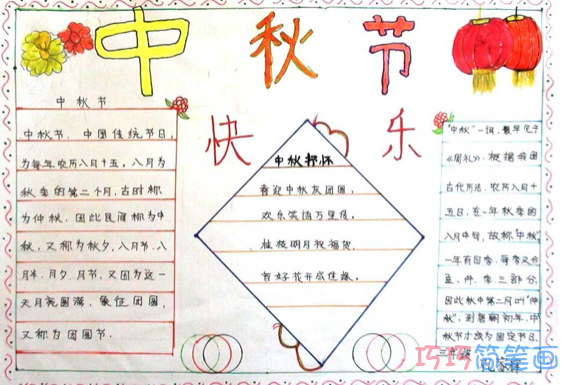 中秋节
快乐
中秋节
中秋节，中国传统节日，
为每年农历八月十五。八月为
秋季的第二个月，古时称
为仲秋，因此民间称为中
秋，又称为秋夕，八月节，八
月半，月夕，月节，又因为这一
天月亮圆满，象征团圆，
又称为团圆节。
中秋抒怀
喜迎中秋友团圆，
欢乐笑语万里绕。
桂枝明月祝福贺，
暂好花开盛佳缘。
"中秋"一词，最早见于
《周礼》，根据我国
古代历法，农历八月十
五日，在一年秋季的
八月中旬，故称"中秋"。
一年有四季，每季又分
孟、仲、季三部分，
因此秋中第二月叫"仲
秋"，到唐朝初年，中
秋节才成为固定节日。
三年级
巧巧简笔画